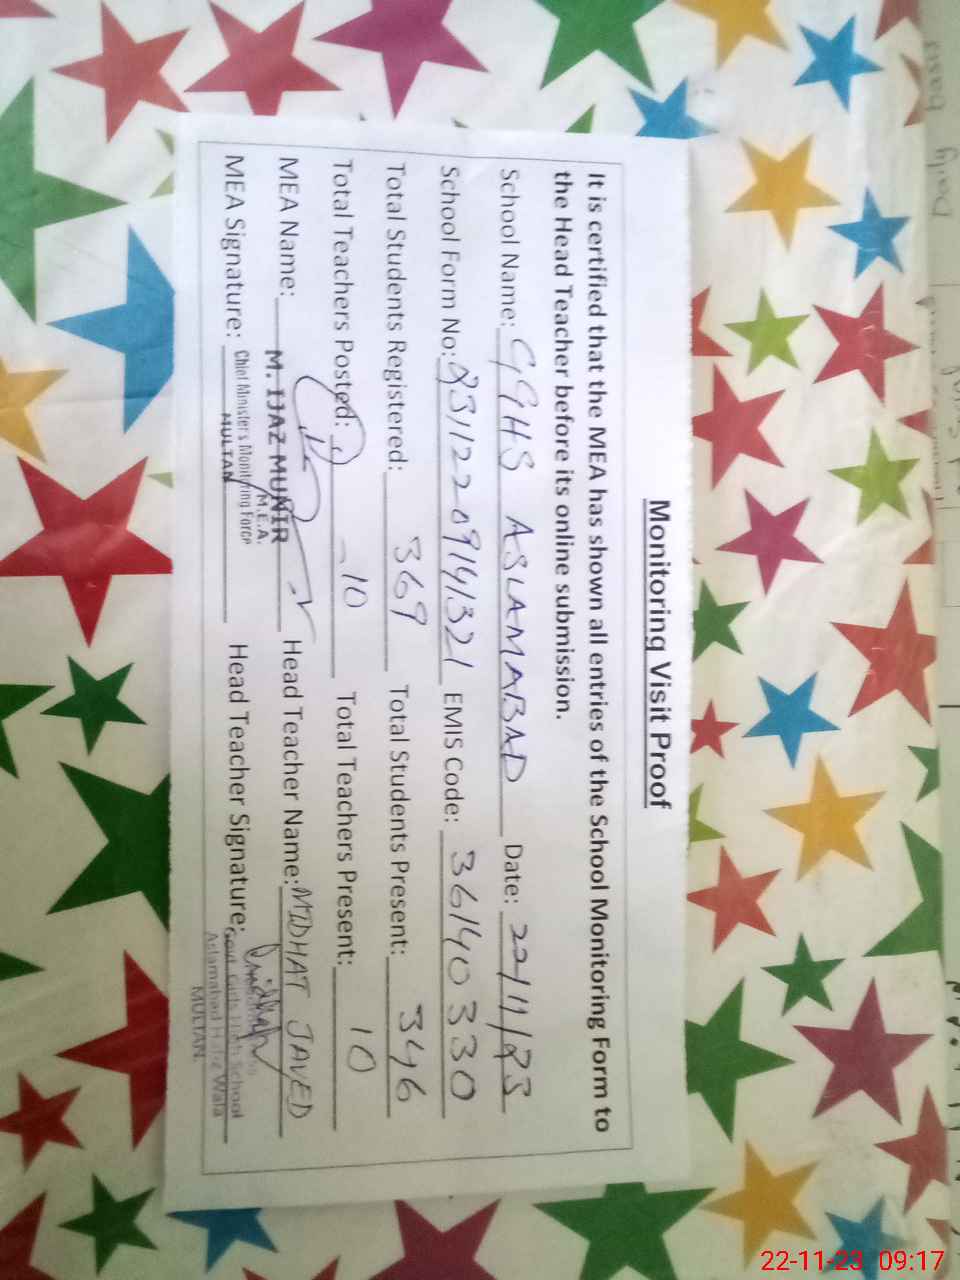 Monitoring Visit Proof
It is certified that the MEA has shown all entries of the School Monitoring Form to
the Head Teacher before its online submission.
School Name: GGHS ASLAMABAD Date: 22/11/23
School Form No: 231122091432 1 EMIS Code: 36140330
Total Students Registered: 369 Total Students Present: 346
Total Teachers Posted: 10 Total Teachers Present: 10
MEA Name: M. IJAZ MUNIR Head Teacher Name: MIDHAT JAVED
M.E.A.
MEA Signature: Chief Minister's Monitring Force Head Teacher Signature:
MULTAN
Govt. Girls High School
Aslamabad Wala
MULTAN.
Daily basis
22-11-23 09:17